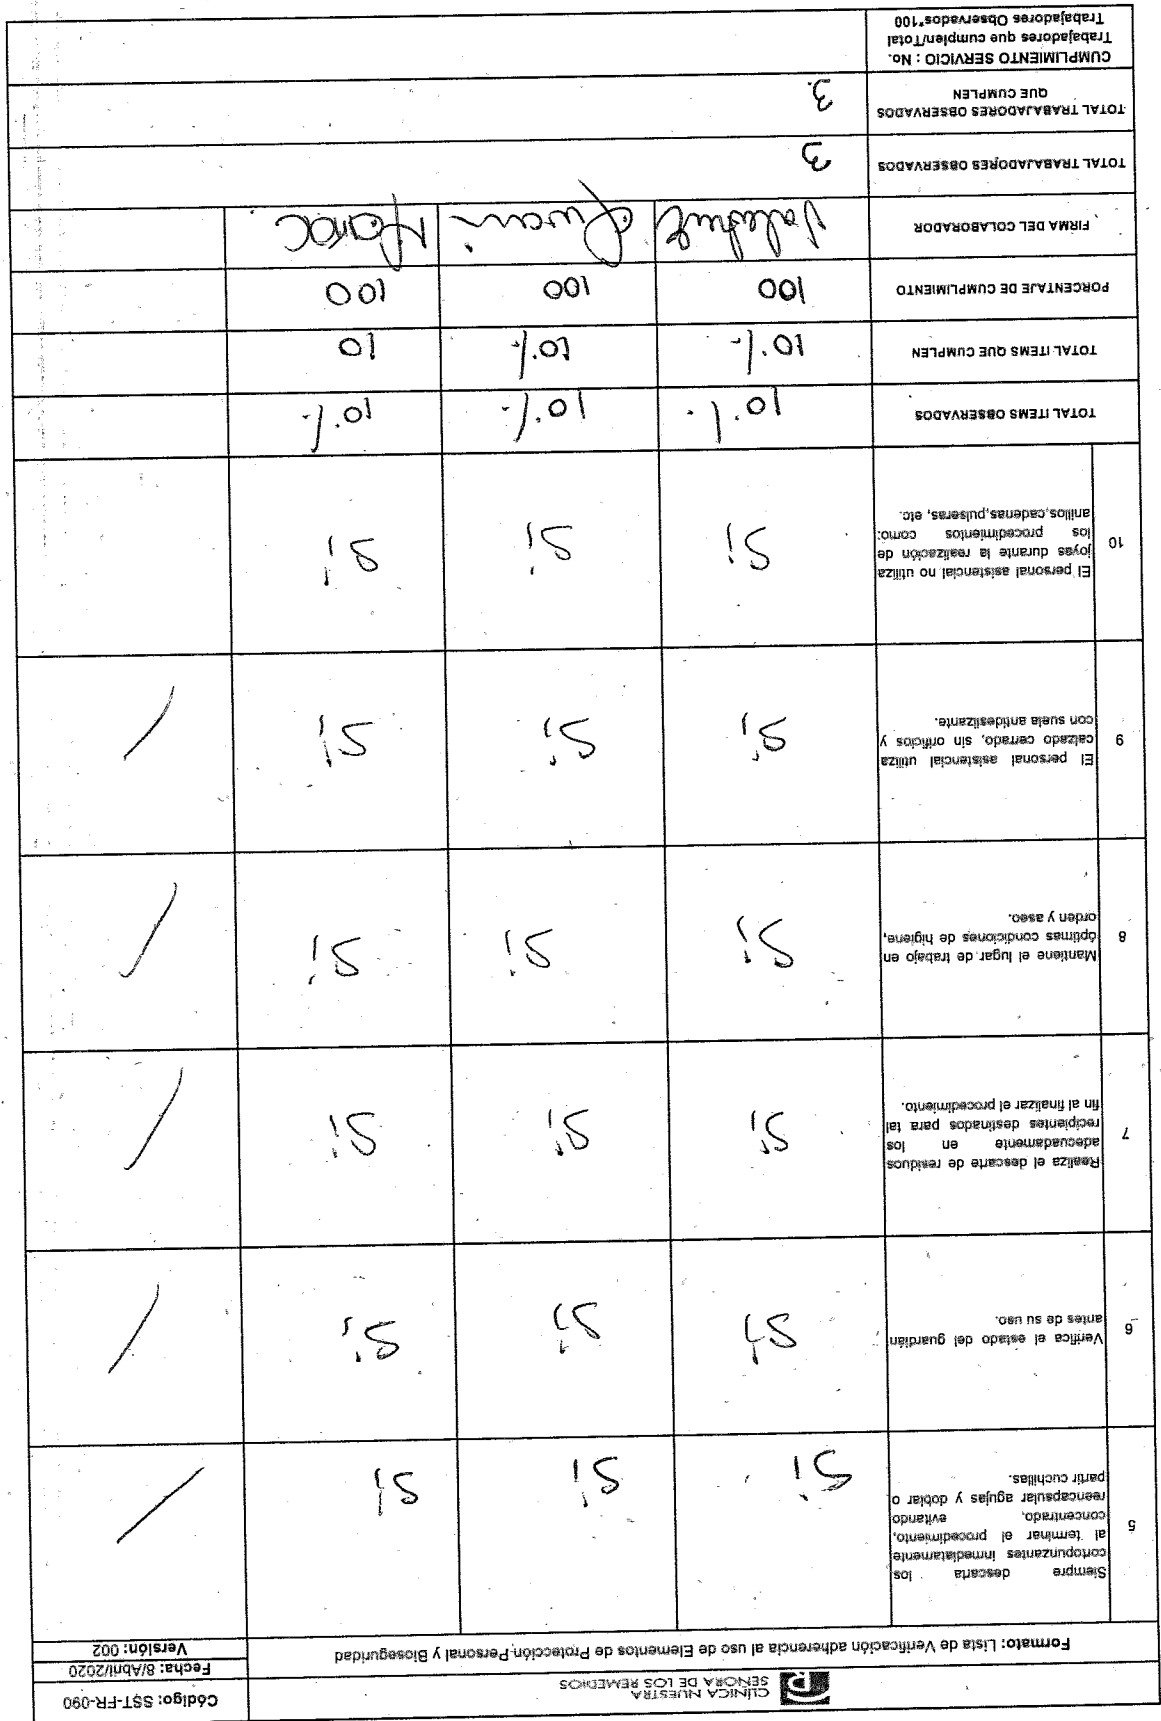 CLÍNICA NUESTRA
SEÑORA DE LOS REMEDIOS
Código: SST-FR-090
Fecha: 8/Abril/2020
Formato: Lista de Verificación adherencia al uso de Elementos de Protección Personal y Bioseguridad
Versión: 002
5
Siempre descarta los
cortopunzantes inmediatamente
al terminar el procedimiento,
concentrado, evitando
reencapsular agujas y doblar o
partir cuchillas.
Si Si Si
6
Verifica el estado del guardián
antes de su uso.
Si Si Si
7
Realiza el descarte de residuos
adecuadamente en los
recipientes destinados para tal
fin al finalizar el procedimiento.
Si Si Si
8
Mantiene el lugar de trabajo en
óptimas condiciones de higiene,
orden y aseo.
Si Si Si
9
El personal asistencial utiliza
calzado cerrado, sin orificios y
con suela antideslizante.
Si Si Si
10
El personal asistencial no utiliza
joyas durante la realización de
los procedimientos como:
anillos,cadenas,pulseras, etc.
Si Si Si
TOTAL ITEMS OBSERVADOS
10%. 10%. 10%.
TOTAL ITEMS QUE CUMPLEN
10%. 10%. 10
PORCENTAJE DE CUMPLIMIENTO
100 100 100
FIRMA DEL COLABORADOR
TOTAL TRABAJADORES OBSERVADOS
3
TOTAL TRABAJADORES OBSERVADOS
QUE CUMPLEN
3.
CUMPLIMIENTO SERVICIO : No.
Trabajadores que cumplen/Total
Trabajadores Observados*100